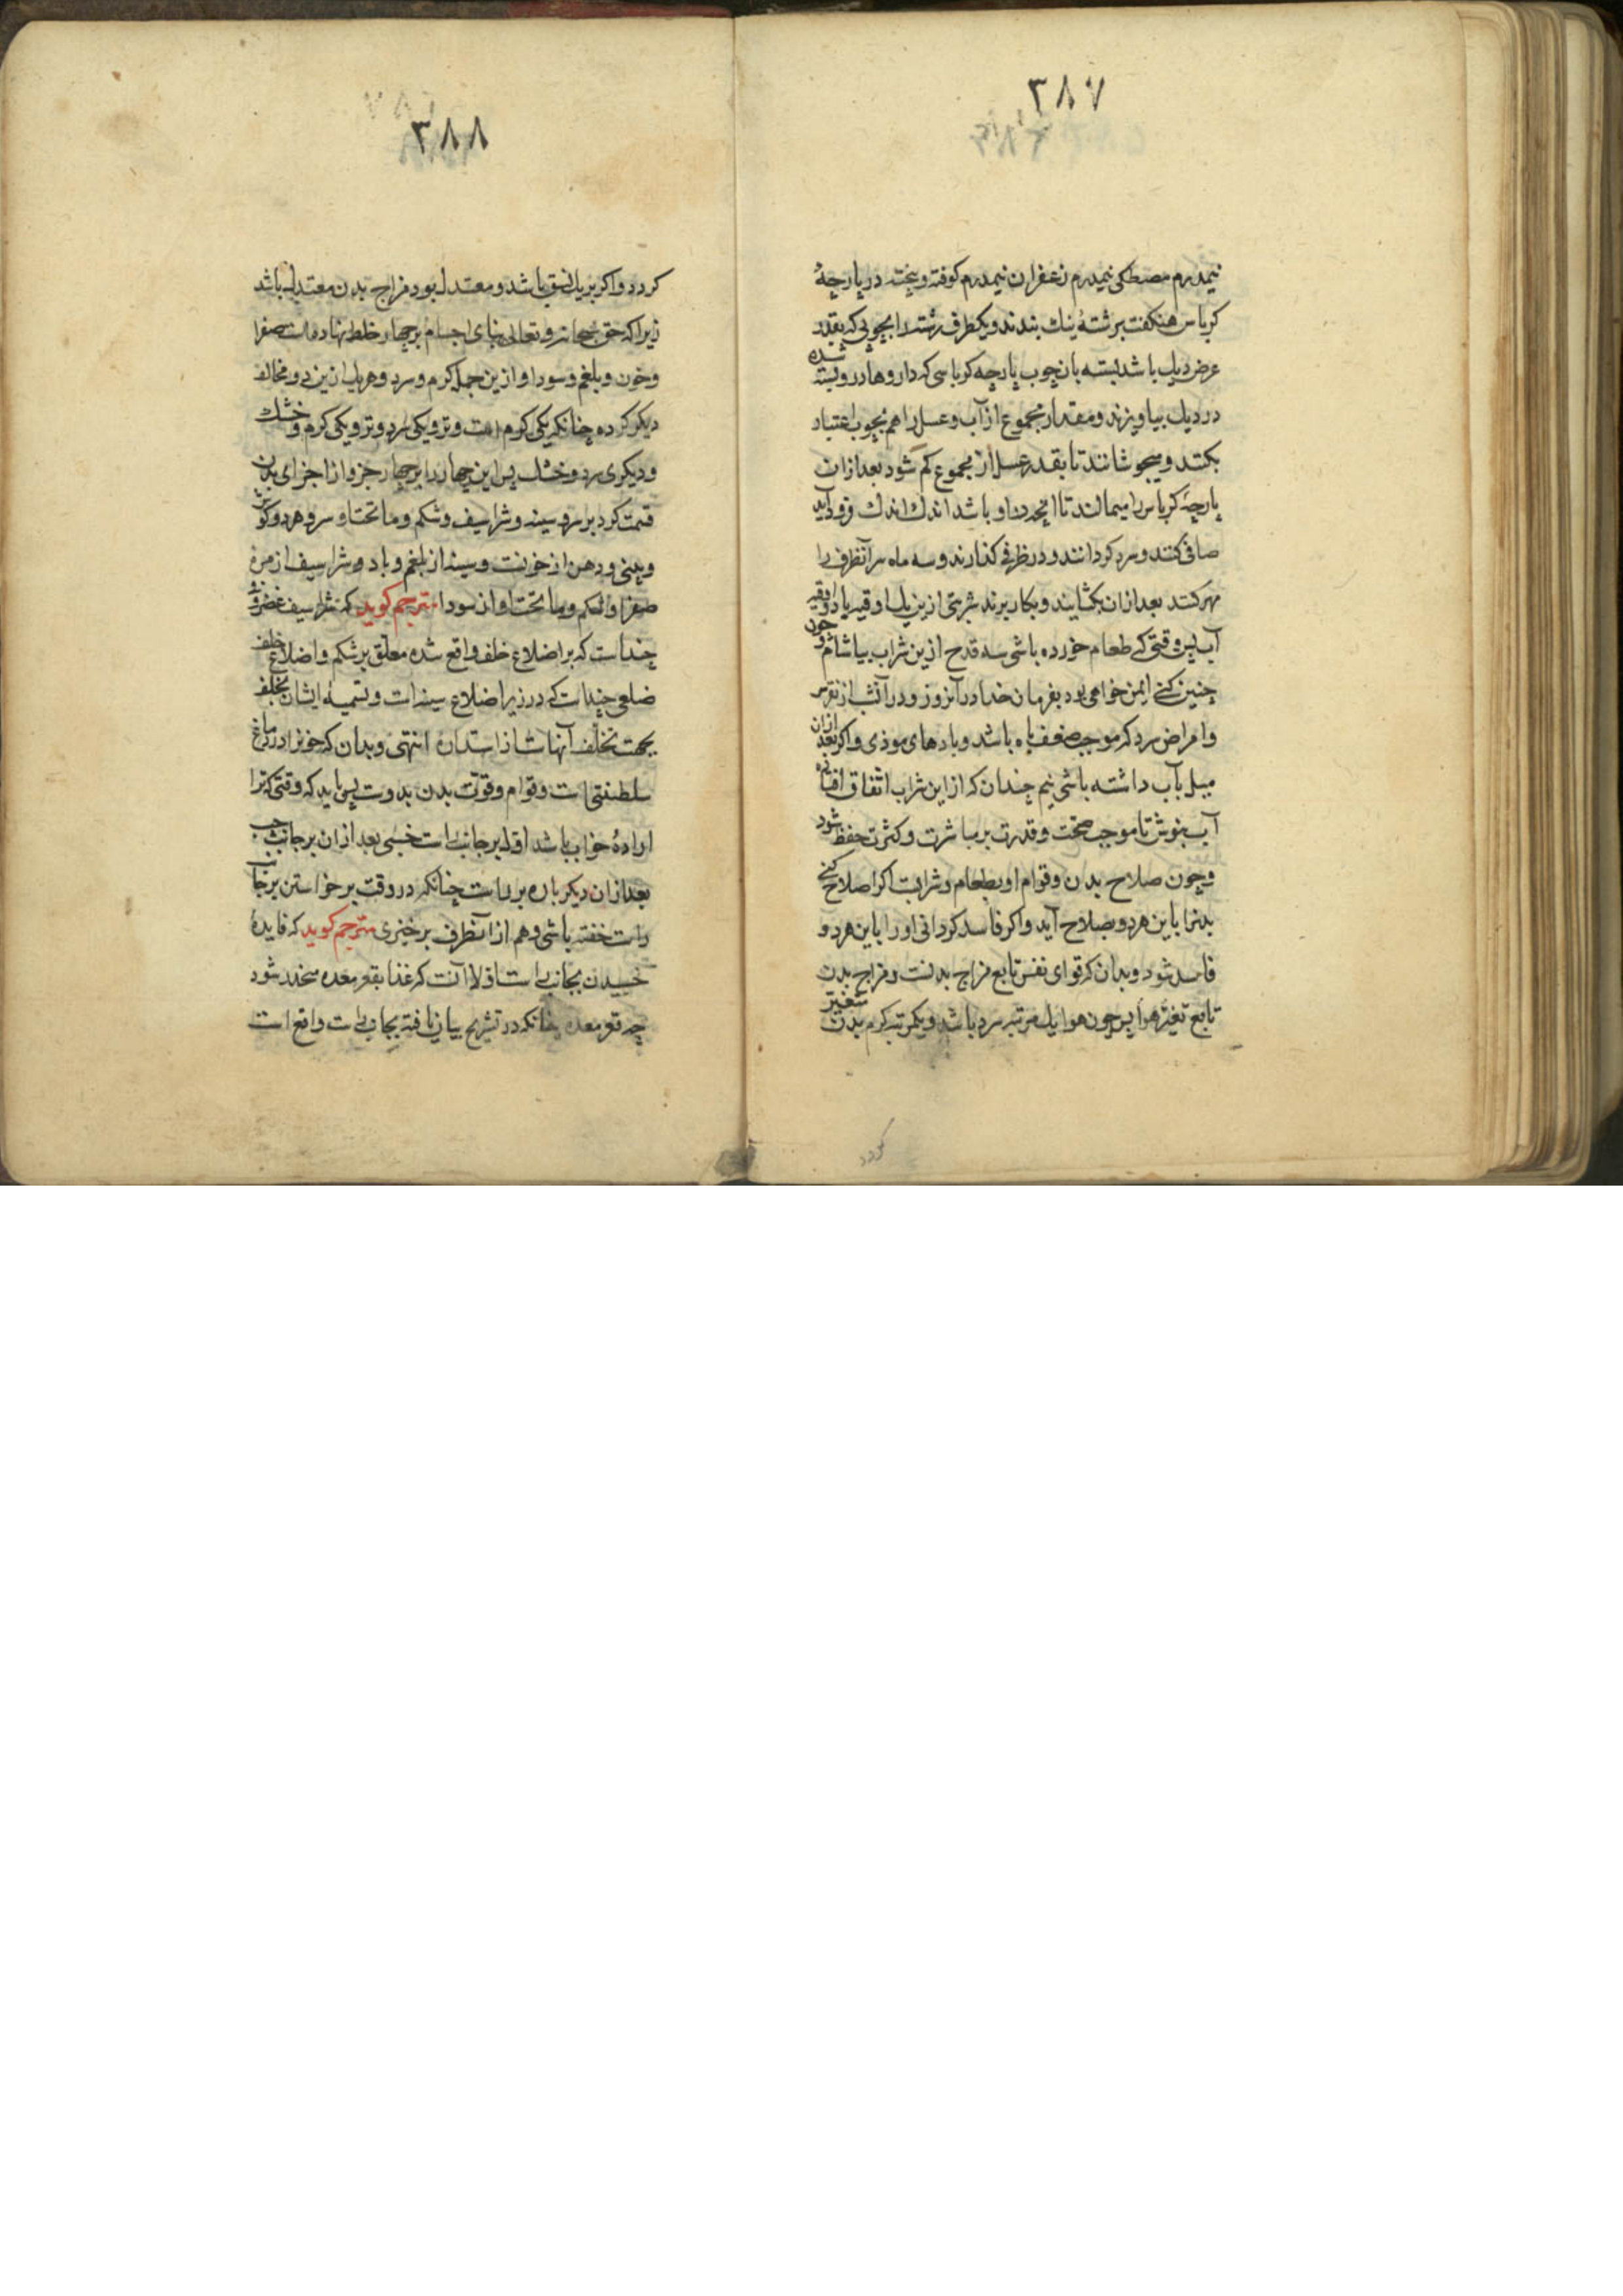 ۳۸۷
نیمدرم مصطکی نیمدرم زعفران نیمدرم کوفته و بیخته در پارچهٔ
کرباس هنکفت برشتهٔ نیک بندند و یکطرف رشته را بچوبی که بقدر
عرض دیک باشد بسته بانچوب پارچه کرباسی که داروها در و بسته شده
در دیک بیاویزند و مقدار مجموع از آب و عسل را هم بچوب اعتبار
بکنند و میجوشانند تا بقدر عسل از مجموع کم شود بعد ازان
پارچهٔ کرباس را میمالند تا انچه در او باشد اندک اندک فرود آید
صافی کنند و سرد کردانند و در ظرفی کذارند و سه ماه سر آنظرف را
مهر کنند بعد ازان بکشایند و بکار برند شربتی ازین یک اوقیه با دو اوقیه
آب پس وقتی که طعام خورده باشی سه قدح ازین شراب بیاشام و چون
چنین کنی ایمن خواهی بود بفرمان خدا در آنروز و در آنشب از نقرس
و امراض سرد که موجب ضعف باه باشد و بادهای موذی و اکر بعد ازان
میل بآب داشته باشی نیم چندان که از این شراب اتفاق افتاده
آب بنوش تا موجب صحت و قدرت بر مباشرت و کثرت حفظ شود
و چون صلاح بدن و قوام او بطعام و شرابست اکر اصلاح کنی
بدنرا باین هر دو بصلاح آید و اکر فاسد کردانی او را باین هر دو
فاسد شود و بدان که قوای نفس تابع مزاج بدنست و مزاج بدن
تابع تغیر هوا پس چون هوا یک مرتبه سرد باشد و یکمرتبه کرم بدن متغیر
کردد
۳۸۸
کردد و اکر بر یک نسق باشد و معتدل بود مزاج بدن معتدل باشد
زیرا که حق سبحانه و تعالی بنای اجسام بر چهار خلط نهاده است صفرا
و خون و بلغم و سودا و ازین جمله کرم و سرد و هر یک ازین دو مخالف
دیکر کرده چنانکه یکی کرم است و تر و یکی سرد و تر و یکی کرم و خشک
و دیکری سرد و خشک پس این چهار را بر چهار جزو از اجزای بدن
قسمت کرد بر سر و سینه و شراسیف و شکم و ما تحت او سر و هر دو کوش
و بینی و دهن از خونست و سینه از بلغم و باد و شراسیف از مره
صفرا و شکم و ما تحت او از سودا مترجم کوید که شراسیف غضروفی
چند است که بر اضلاع خلف واقع شده معلق بر شکم و اضلاع خلف
ضلعی چند است که در زیر اضلاع سینه است و تسمیه ایشان بخلف
بجهت تخلف آنهاست از استدان انتهی و بدان که خوابرا در دماغ
سلطنتی است و قوام و قوت بدن بدوست پس باید که وقتی که ترا
ارادهٔ خواب باشد اول بر جانب راست خسبی بعد ازان بر جانب چپ
بعد ازان دیکر باره بر راست چنانکه در وقت برخواستن بر جانب
راست خفته باشی و هم از آنطرف برخیزی مترجم کوید که فایدهٔ
خسبیدن بجانب راست اولا آنست که غذا بقعر معده منحدر شود
چه قعر معده چنانکه در تشریح بیان یافته بجانب راست واقع است